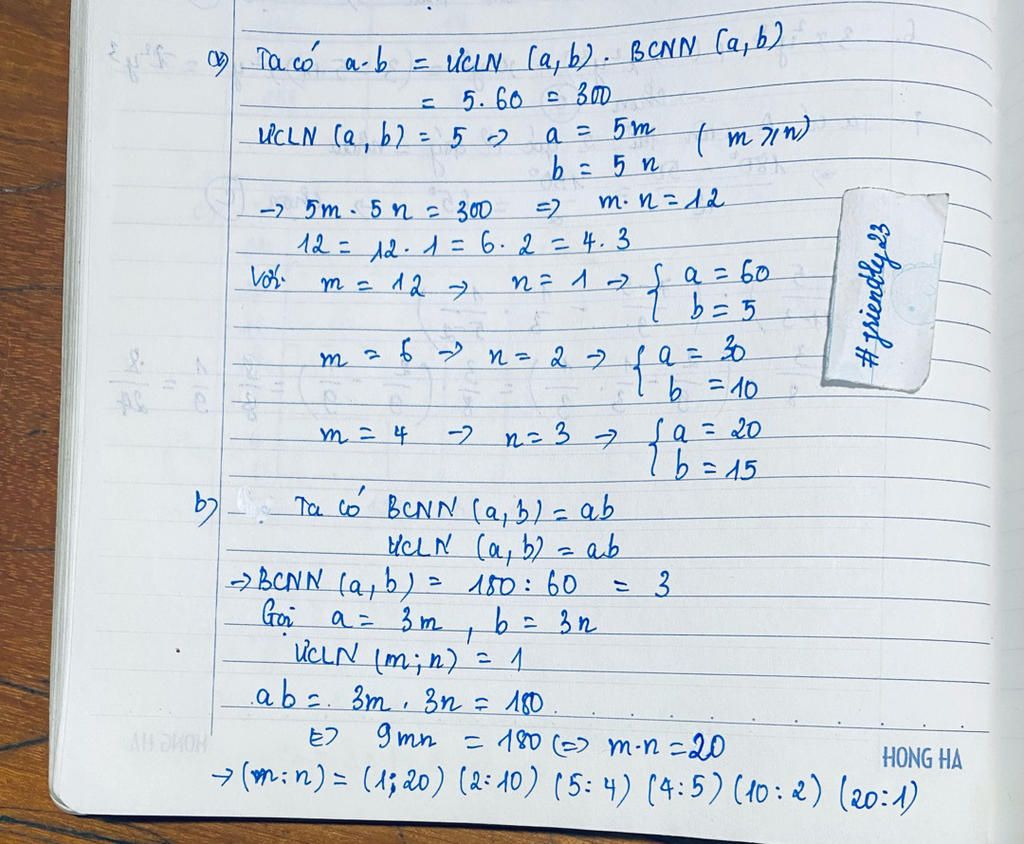 a) Ta có a.b = ƯCLN (a,b). BCNN (a,b)
= 5.60 = 300
ƯCLN (a,b) = 5 → a = 5m ( m ⩾ n)
b = 5 n
→ 5m . 5n = 300 => m.n = 12
12 = 12.1 = 6.2 = 4.3
Với m = 12 → n = 1 → { a = 60
b = 5
m = 6 → n = 2 → { a = 30
b = 10
m = 4 → n = 3 → { a = 20
b = 15
b) Ta có BCNN (a,b) = ab
ƯCLN (a,b) = ab
→ BCNN (a,b) = 180 : 60 = 3
Gọi a = 3m , b = 3n
ƯCLN (m;n) = 1
ab = 3m . 3n = 180
<=> 9mn = 180 <=> m.n = 20
→ (m:n) = (1;20) (2:10) (5:4) (4:5) (10:2) (20:1)
#friendly23
HONG HA